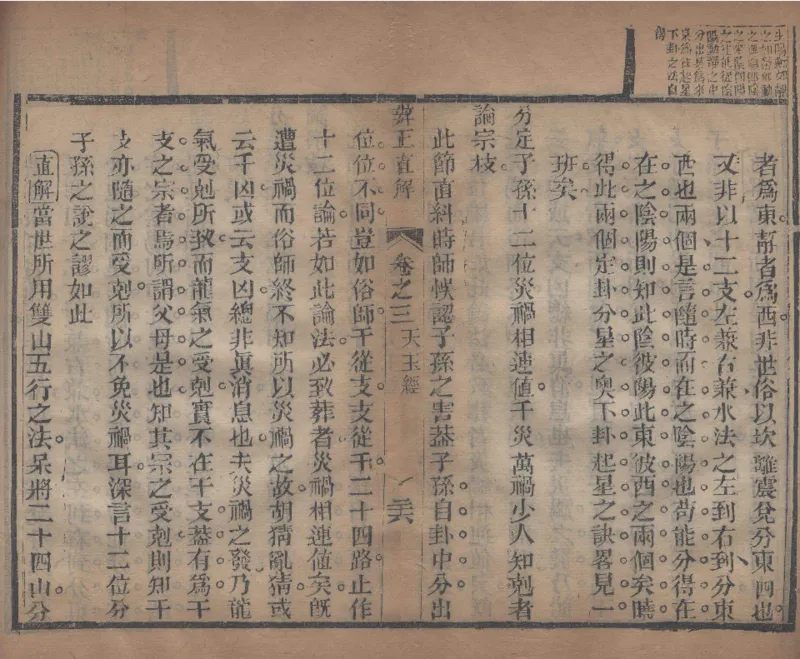 生陽動
之
分出
卦爲往起星
下卦之法自
者爲東靜者爲西非世俗以坎離震兌分東西也
又非以十二支左兼右兼水法之左到右到分東
西也兩個是言隨時而在之陰陽也苟能分得在
在之陰陽則知此陰彼陽此東彼西之兩個矣曉
得此兩個定卦分星之奧下卦起星之訣畧見一
班矣
分定子孫十二位災禍相連值千災萬禍少人知尅者
論宗枝
此節直糾時師悞認子孫之害葢子孫自卦中分出
辨正直解 卷之三 天玉經 三六
位位不同豈如俗師干從支支從干二十四路止作
十二位論若如此論法必致葬者災禍相連值矣旣
遭災禍而俗師終不知所以災禍之故胡猜亂猜或
云干凶或云支凶總非眞消息也夫災禍之發乃龍
氣受尅所致而龍氣之受尅實不在干支葢有爲干
支之宗者焉所謂父母是也知其宗之受尅則知干
支亦隨之而受尅所以不免災禍耳深言十二位分
子孫之說之謬如此
直解當世所用雙山五行之法呆將二十四山分